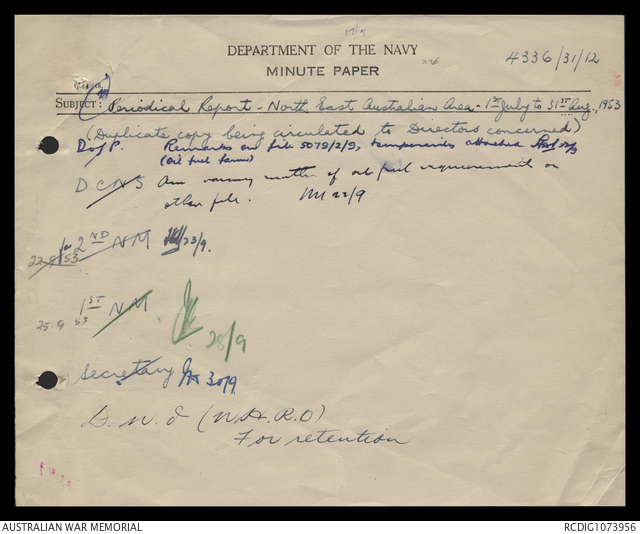 17/9
DEPARTMENT OF THE NAVY
4336/31/12
MINUTE PAPER
SUBJECT: Periodical Report - North East Australian Area - 1st July to 31st Aug., 1953
(Duplicate copy being circulated to Directors concerned)
D of P. Remarks on file 5079/2/9, temporarily attached
(Oil fuel farm)
DCNS Am raising matter of oil fuel requirement on
other file. 22/9
for 2ND NM 23/9.
22-9-53
1ST NM
25.9.53
28/9
Secretary 30/9
D.N.I (N.H.R.O)
For retention
AUSTRALIAN WAR MEMORIAL
RCDIG1073956